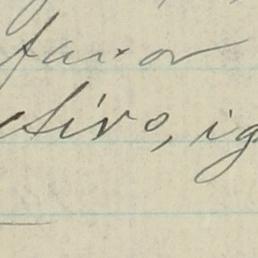 favor
ctivo, ig